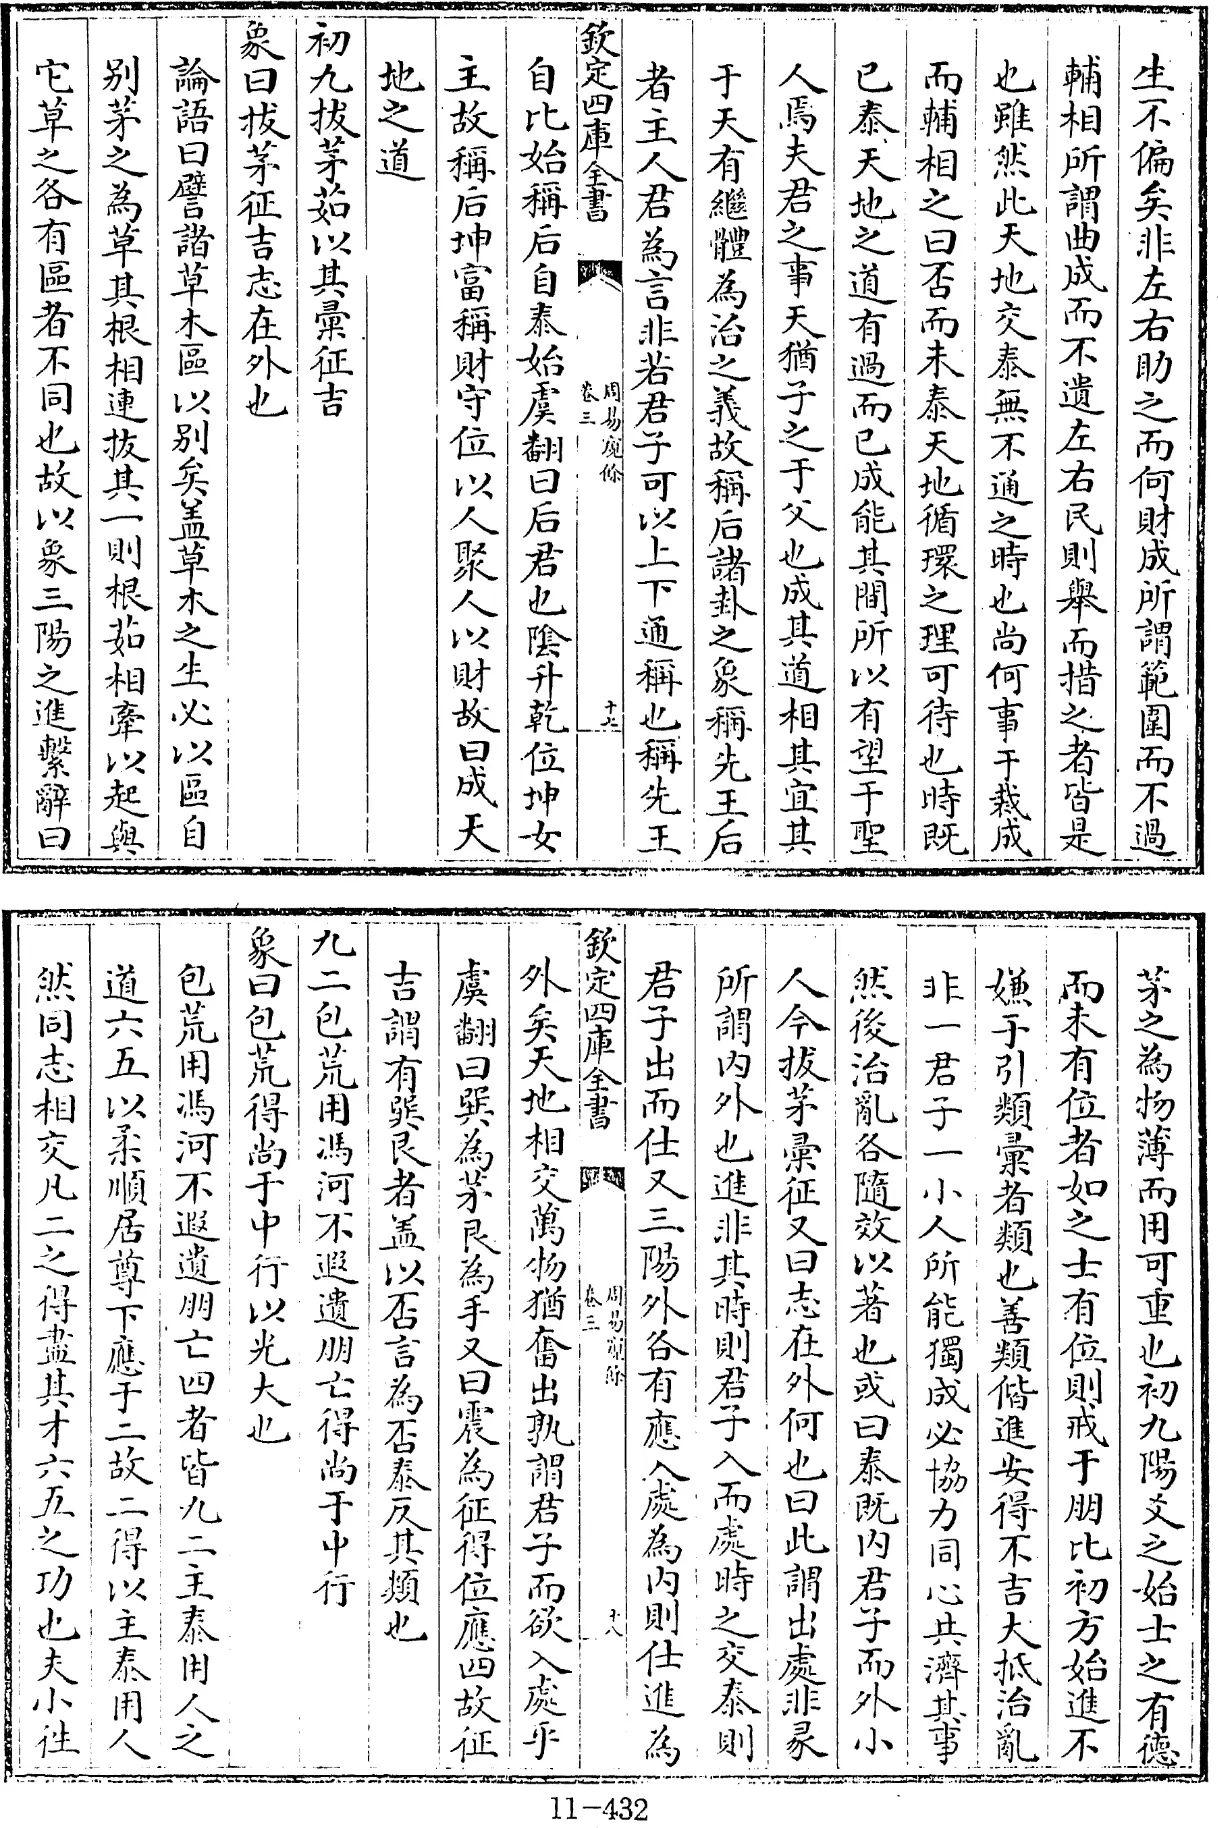 生不偏矣非左右助之而何財成所謂範圍而不過
輔相所謂曲成而不遺左右民則舉而措之者皆是
也雖然此天地交泰無不通之時也尚何事于裁成
而輔相之曰否而未泰天地循環之理可待也時既
已泰天地之道有過而已成能其間所以有望于聖
人焉夫君之事天猶子之于父也成其道相其宜其
于天有繼體為治之義故稱后諸卦之象稱先王后
者主人君為言非若君子可以上下通稱也稱先王
欽定四庫全書
周易窺餘
卷三
十七
自比始稱后自泰始虞翻曰后君也陰升乾位坤女
主故稱后坤富稱財守位以人聚人以財故曰成天
地之道
初九拔茅茹以其彙征吉
象曰拔茅征吉志在外也
論語曰譬諸草木區以别矣盖草木之生必以區自
别茅之為草其根相連拔其一則根茹相牽以起與
它草之各有區者不同也故以象三陽之進繫辭曰
茅之為物薄而用可重也初九陽爻之始士之有德
而未有位者如之士有位則戒于朋比初方始進不
嫌于引類彙者類也善類偕進安得不吉大抵治亂
非一君子一小人所能獨成必協力同心共濟其事
然後治亂各隨效以著也或曰泰既内君子而外小
人今拔茅彙征又曰志在外何也曰此謂出處非彖
所謂内外也進非其時則君子入而處時之交泰則
君子出而仕又三陽外各有應入處為内則仕進為
欽定四庫全書
周易窺餘
卷三
十八
外矣天地相交萬物猶奮出孰謂君子而欲入處乎
虞翻曰巽為茅艮為手又曰震為征得位應四故征
吉謂有巽艮者盖以否言為否泰反其類也
九二包荒用馮河不遐遺朋亡得尚于中行
象曰包荒得尚于中行以光大也
包荒用馮河不遐遺朋亡四者皆九二主泰用人之
道六五以柔順居尊下應于二故二得以主泰用人
然同志相交凡二之得盡其才六五之功也夫小徃
11-432